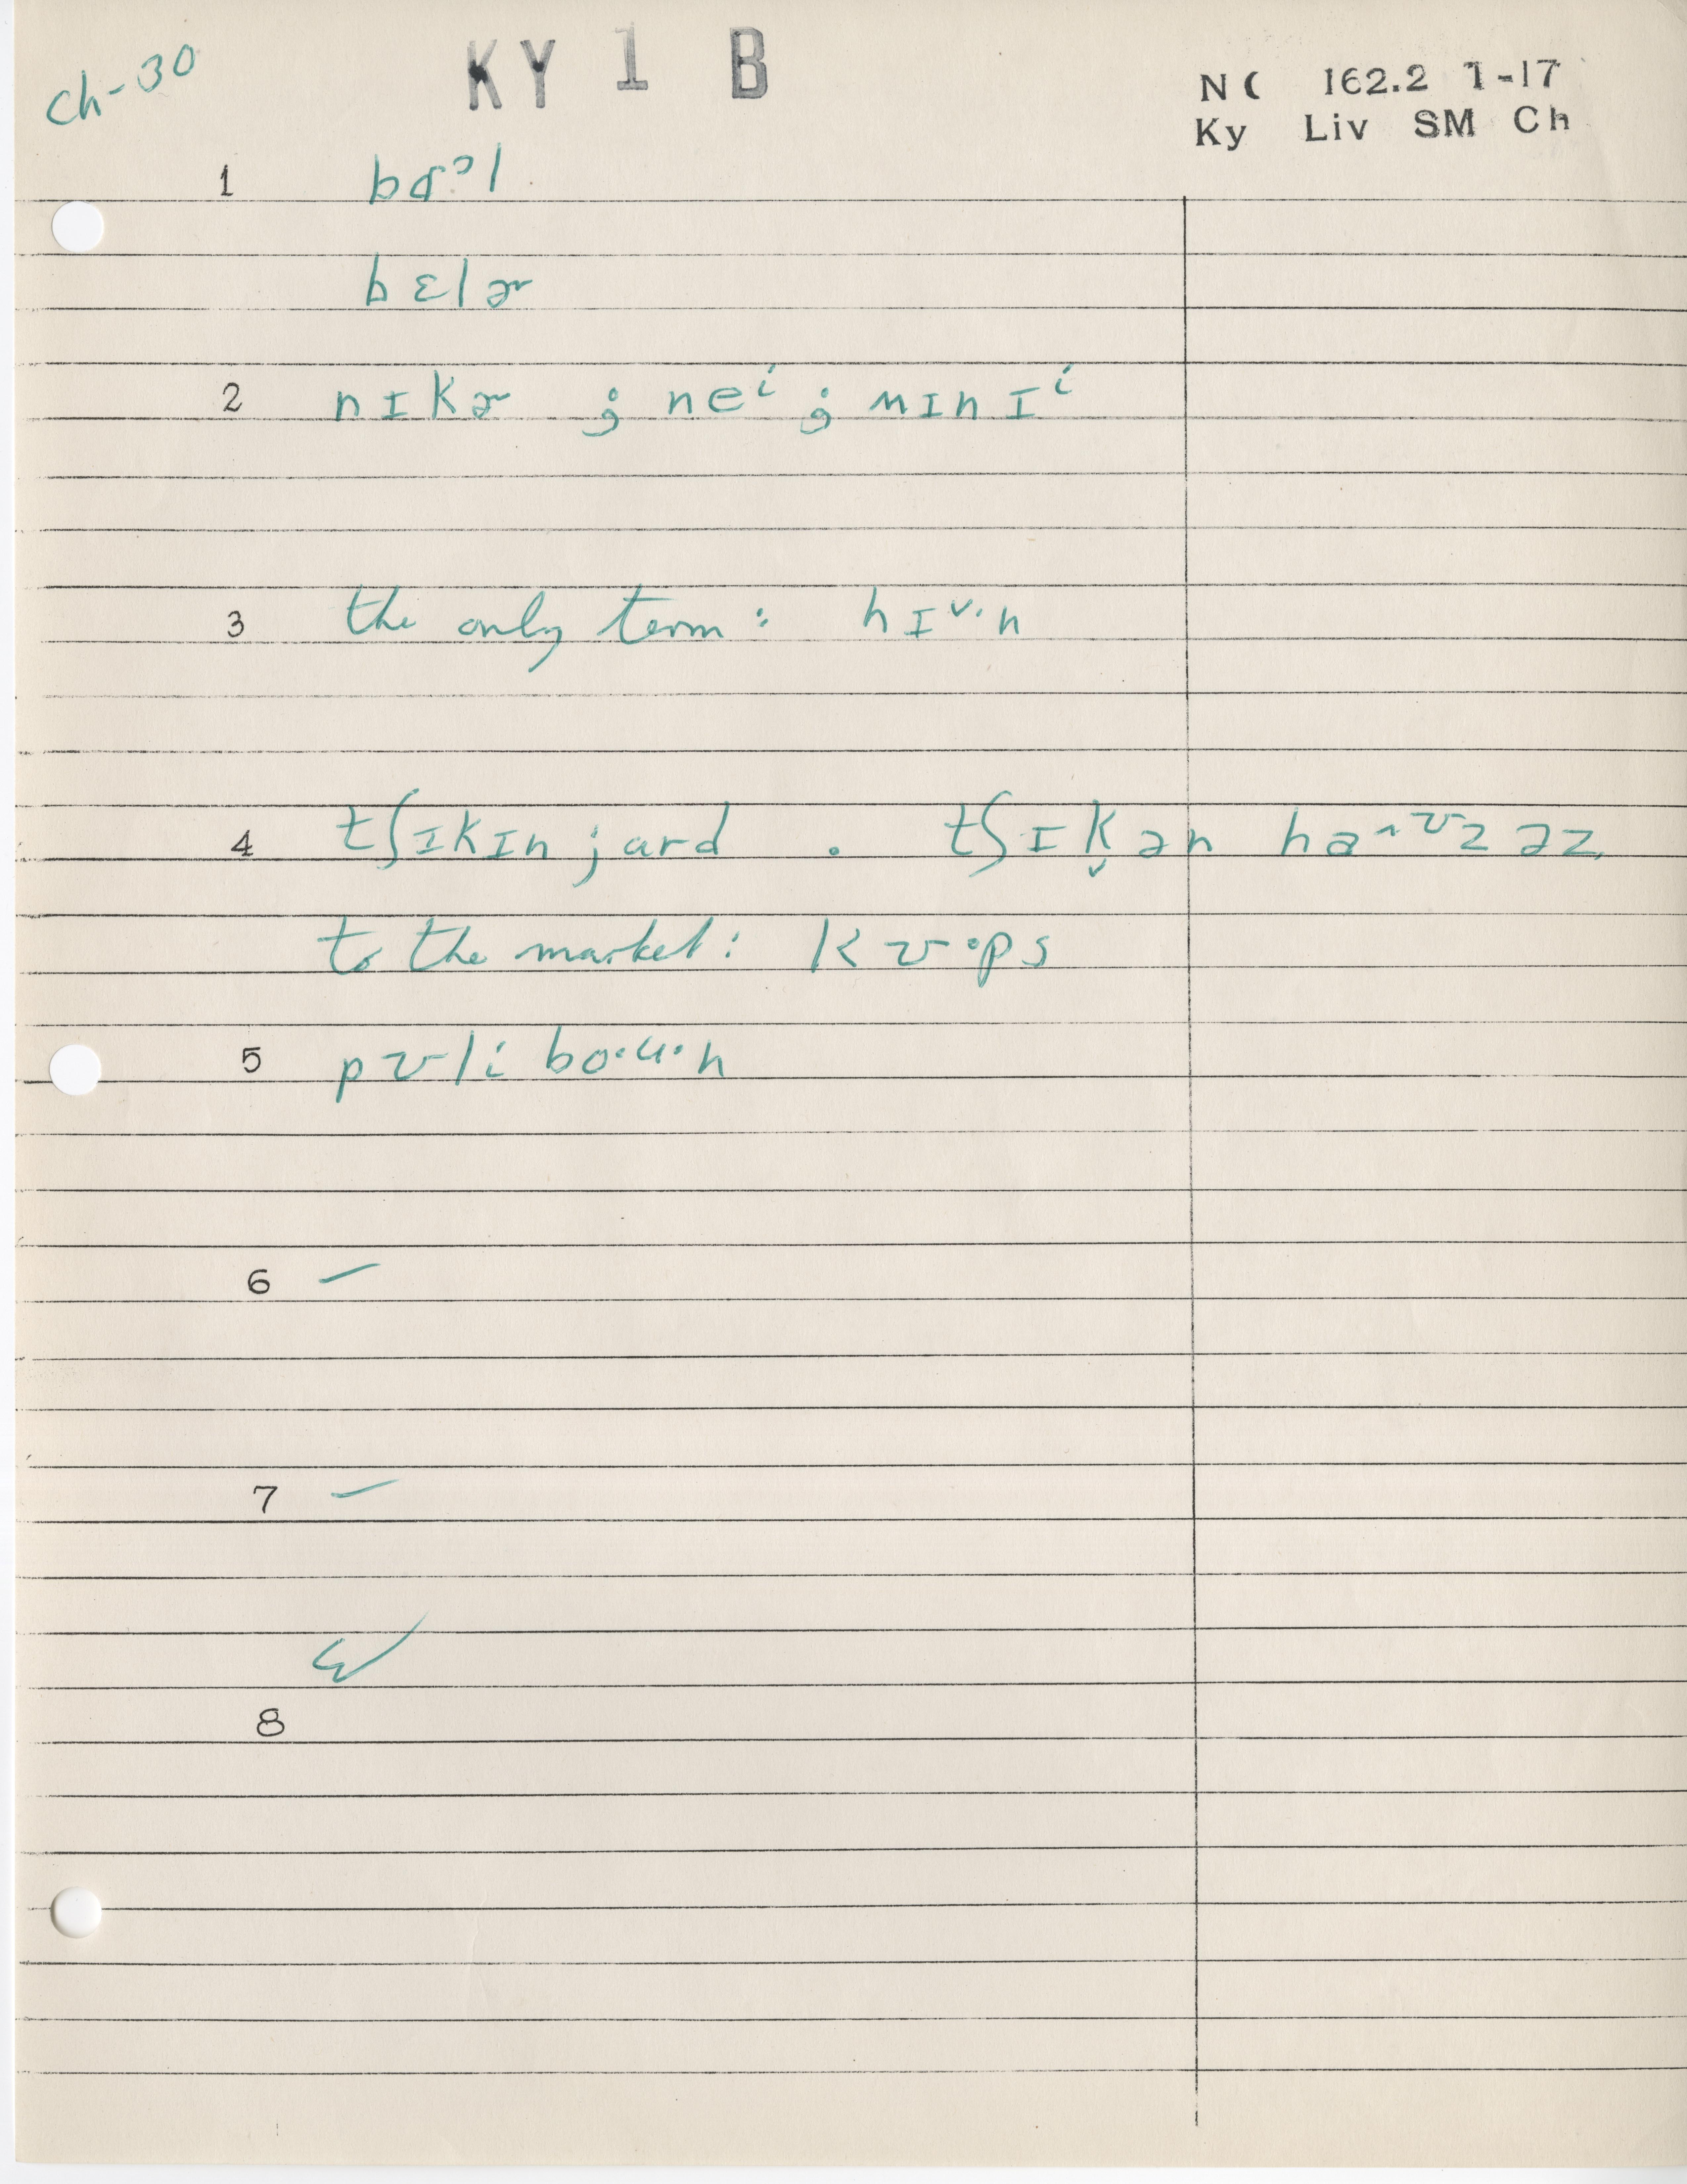 ch-30
KY 1 B
NC 162.2 1-17
Ky Liv SM Ch
1 bɑᵊl
bɛlɚ
2 nɪkɚ ; neⁱ ; mɪnɪⁱ
3 the only term : hɪᵛ·n
4 tʃɪkɪn jard . tʃɪk̬ən haᶺʊzəz
to the market : kʊ·ps
5 pʊli bo·u·n
6 –
7 –
8